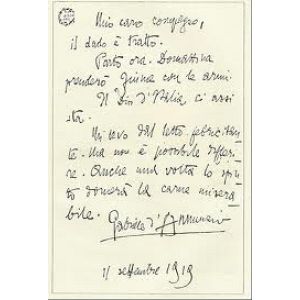 Mio caro compagno,
il dado è tratto.
Parto ora. Domattina
prenderò Fiume con le armi.
Il Dio d'Italia ci assi
sta.
Mi levo dal letto febbricitan
te. Ma non è possibile differi
re. Anche una volta lo spi
rito domerà la carne misera
bile.
Gabriele d'Annunzio
11 settembre 1919